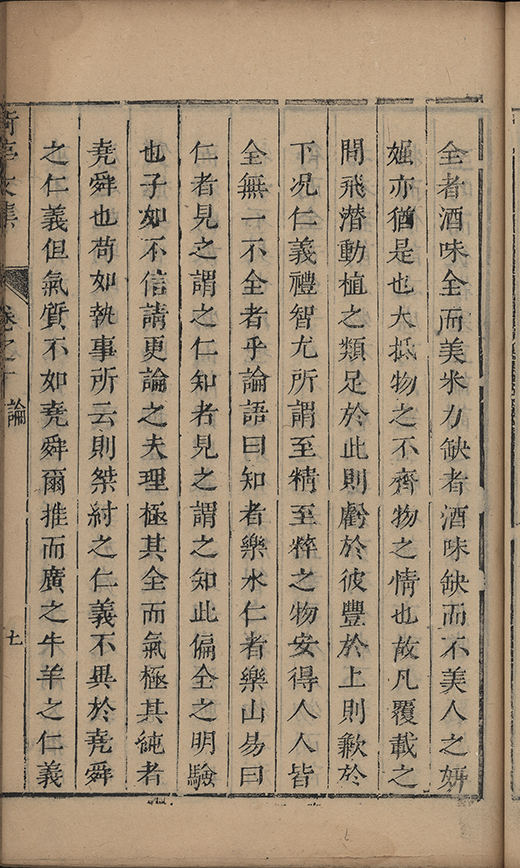 全者酒味全而美米力缺者酒味缺而不美人之妍
媸亦猶是也大抵物之不齊物之情也故凡覆載之
間飛潛動植之類足於此則虧於彼豐於上則歉於
下况仁義禮智尤所謂至精至粹之物安得人人皆
全無一不全者乎論語曰知者樂水仁者樂山易曰
仁者見之謂之仁知者見之謂之知此偏全之明驗
也子如不信請更論之夫理極其全而氣極其純者
堯舜也苟如執事所云則桀紂之仁義不異於堯舜
之仁義但氣質不如堯舜爾推而廣之牛羊之仁義
文集 卷之十 論 七